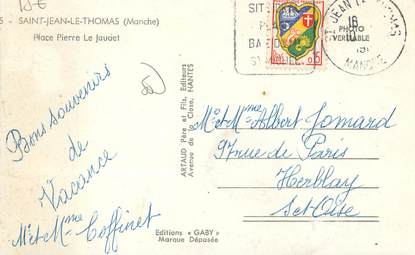 15€
5 SAINT-JEAN-LE-THOMAS (Manche)
Place Pierre Le Jaudet
Bons souvenirs
de
Vacance
Mr et Mme Coffinet
ARTAUD Père et Fils, Editeurs
Avenue de la Close, NANTES
Editions « GABY »
Marque Déposée
SITE
BA
ST MICHEL
0,15
ST JEAN LE THOMAS
16
MANCHE
PHOTO
VERITABLE
Mr et Mme Albert Jomard
97 rue de Paris
Herblay
Set Oise